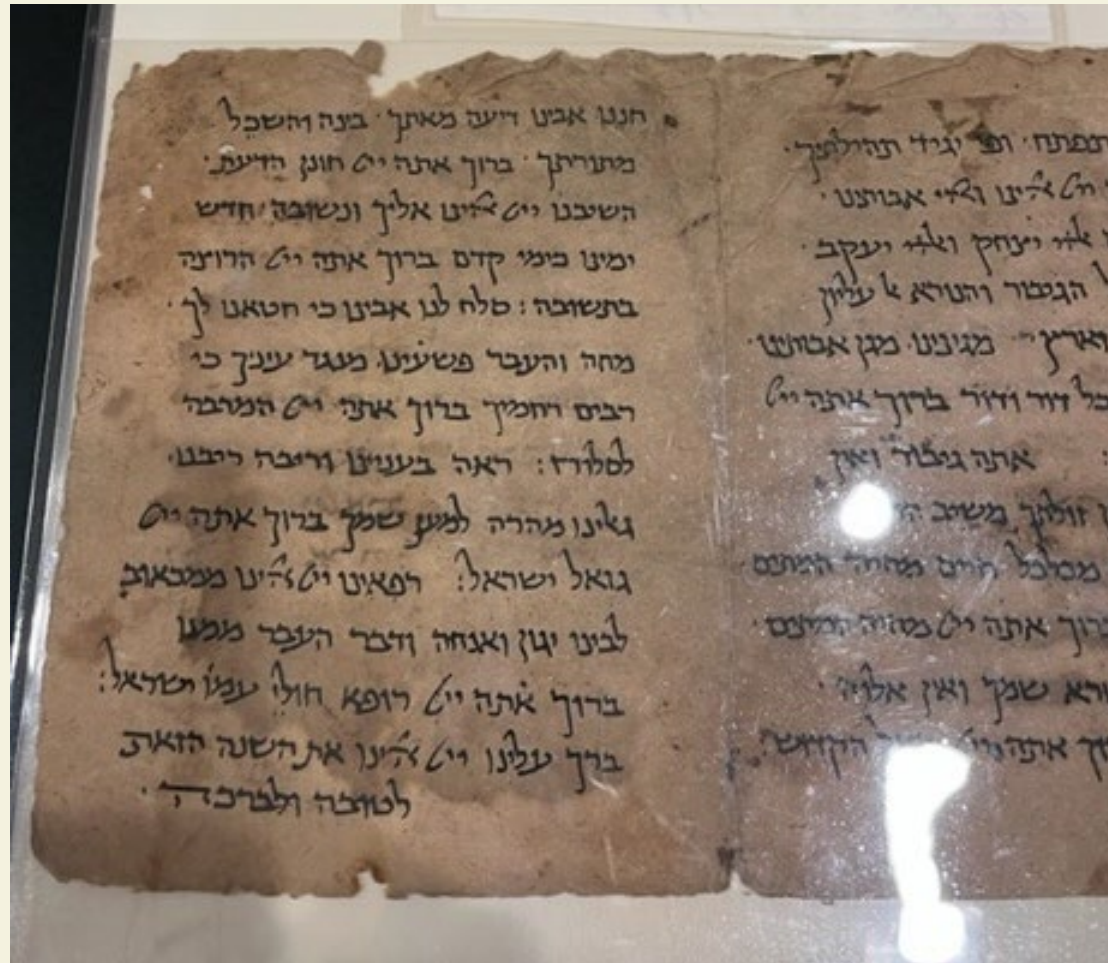 תפתח · ופי יגיד תהילתיך ·
ייי אלהינו ואלהי אבותינו ·
אלהי יצחק ואלהי יעקב
הגיבור והנורא אל עליון
וארץ מגינינו מגן אבותינו ·
בכל דור ודור ברוך אתה ייי
אתה גיבור ואין
זולתך משיב
מכלכל חיים מחיה המתים
ברוך אתה ייי מחיה המיתים ·
נורא שמך ואין אלוה ·
אתה ייי הקדוש
חננו אבינו דיעה מאתך · בינה והשכל
מתורתך · ברוך אתה ייי חונן הדיעת ·
השיבנו ייי אלהינו אליך ונשובה חדש
ימינו כימי קדם ברוך אתה ייי הרוצה
בתשובה : סלח לנו אבינו כי חטאנו לך ·
מחה והעבר פשעינו מנגד עיניך כי
רבים רחמיך ברוך אתה ייי המרבה
לסלוח : ראה בענינו וריבה ריבנו ·
גאלינו מהרה למען שמך ברוך אתה ייי
גואל ישראל : רפאינו ייי אלהינו ממכאוב
לבינו יגון ואנחה ודבר העבר ממנו
ברוך אתה ייי רופא חולי עמו ישראל :
ברך עלינו ייי אלהינו את השנה הזאת
לטובה ולברכה ·